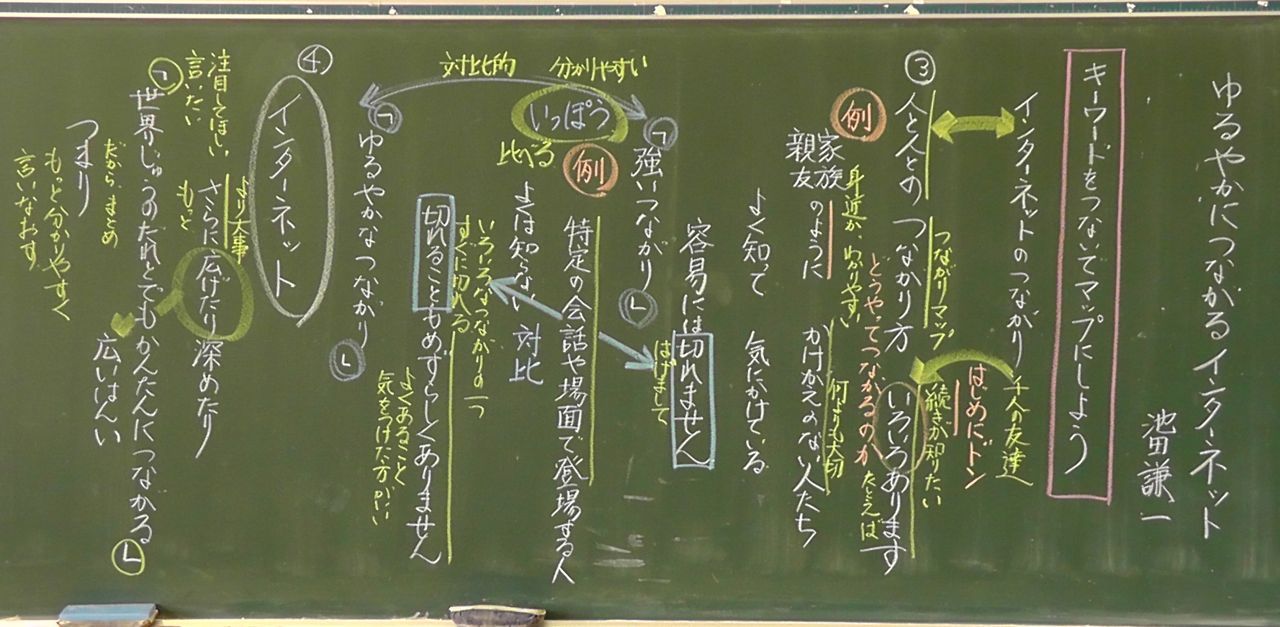 ゆるやかにつながるインターネット
池田謙一
キーワードをつないでマップにしよう
インターネットのつながり
千人の友達
はじめにドン
続きが知りたい
つながりマップ
③
人と人との つながり方 いろいろあります
どうやってつながるのか
たとえば
例
身近か わかりやすい
何よりも大切
家族
親友
のように かけがえのない人たち
よく知って 気にかけている
容易には切れません
はげまして
「強いつながり」
分かりやすい
対比的
いっぽう
比べる
例
特定の会話や場面で登場する人
よくは知らない 対比
いろいろなつながりの一つ
すぐに切れる
切れることもめずらしくありません
よくあること
気をつけた方がいい
「ゆるやかなつながり」
④
インターネット
より大事
もっと
さらに広げたり 深めたり
注目してほしい
言いたい
広いはんい
「世界じゅうのだれとでもかんたんにつながる」
つまり
だから、まとめ
もっと分かりやすく
言いなおす